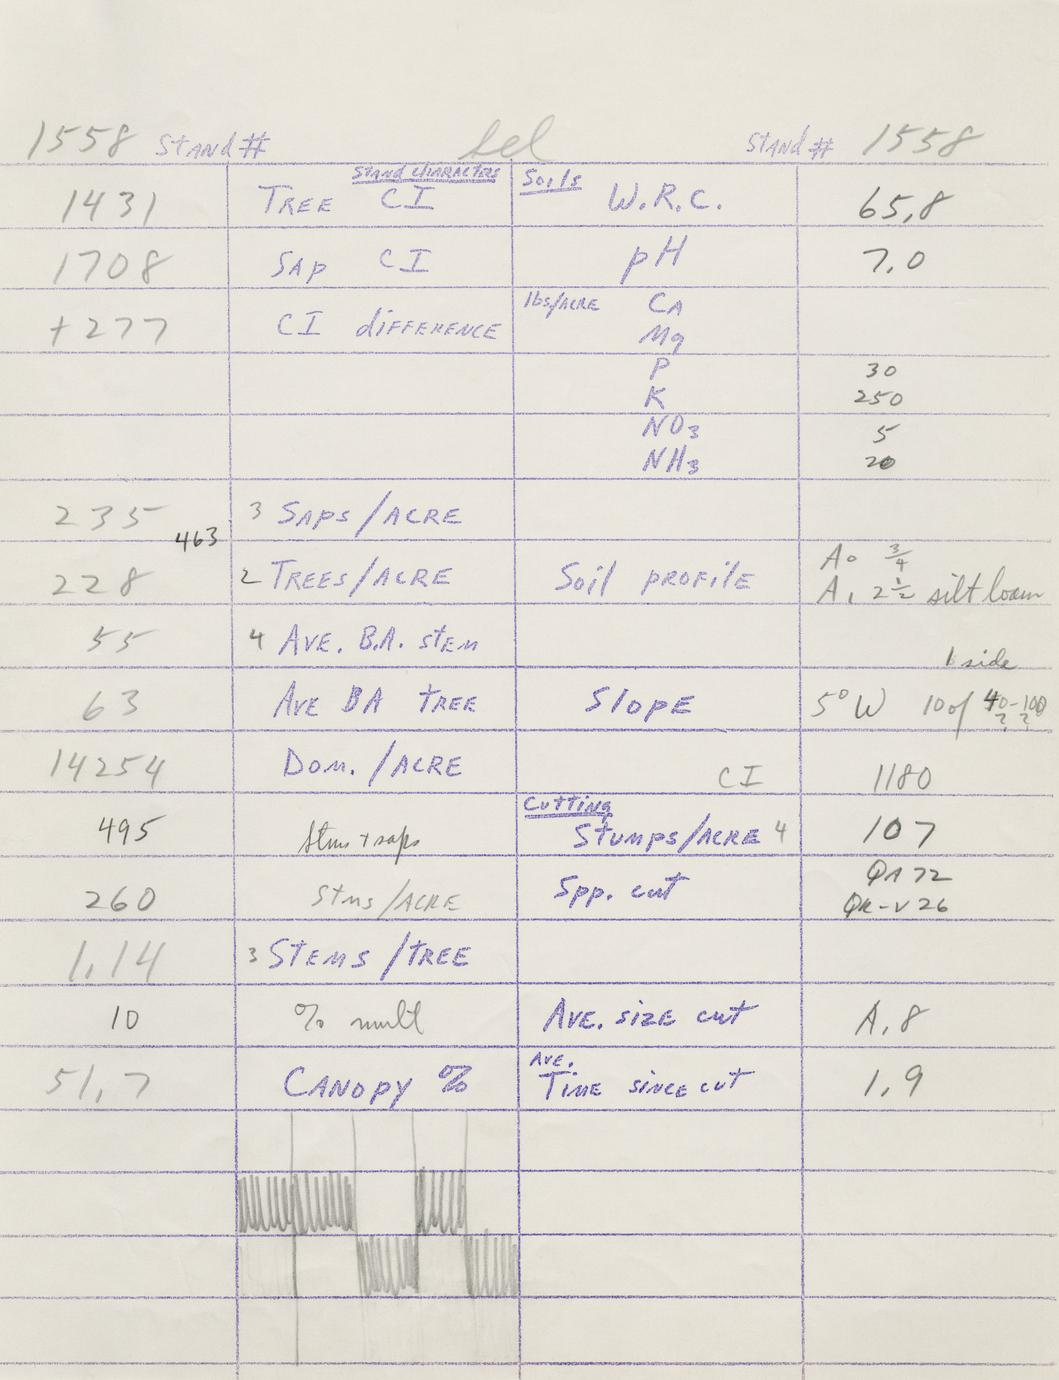 1558 Stand # Sel Stand # 1558
Stand Characters Soils
1431 Tree CI W.R.C. 65.8
1708 Sap CI pH 7.0
lbs/Acre Ca
+277 CI difference Mg
P 30
K 250
NO3 5
NH3 20
235 3 Saps/Acre
463
A0 3/4
228 2 Trees/Acre Soil profile A1 2 1/2 silt loam
55 4 Ave. B.A. stem
side
63 Ave BA tree Slope 5° W 10 of 40-100
? ?
14254 Dom./Acre CI 1180
Cutting
495 Stms + saps Stumps/Acre 4 107
QA 72
260 Stms/Acre Spp. cut QR-V 26
1.14 3 Stems/tree
10 % mult Ave. size cut A.8
Ave.
51.7 Canopy % Time since cut 1.9